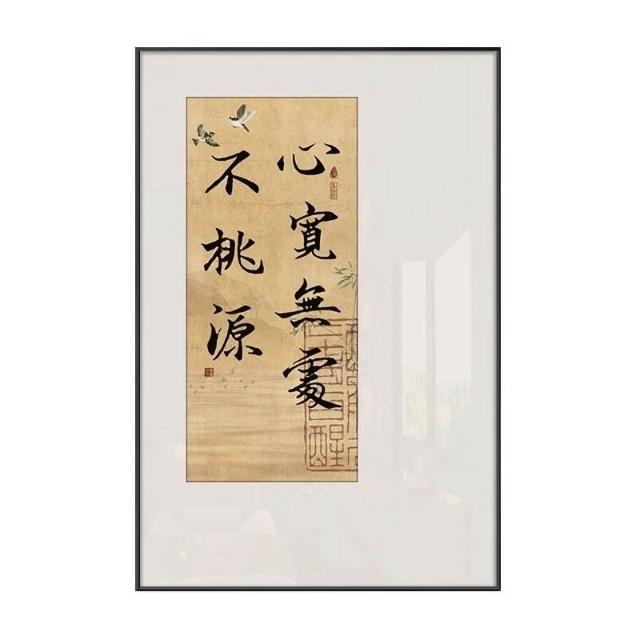 心寬無處
不桃源